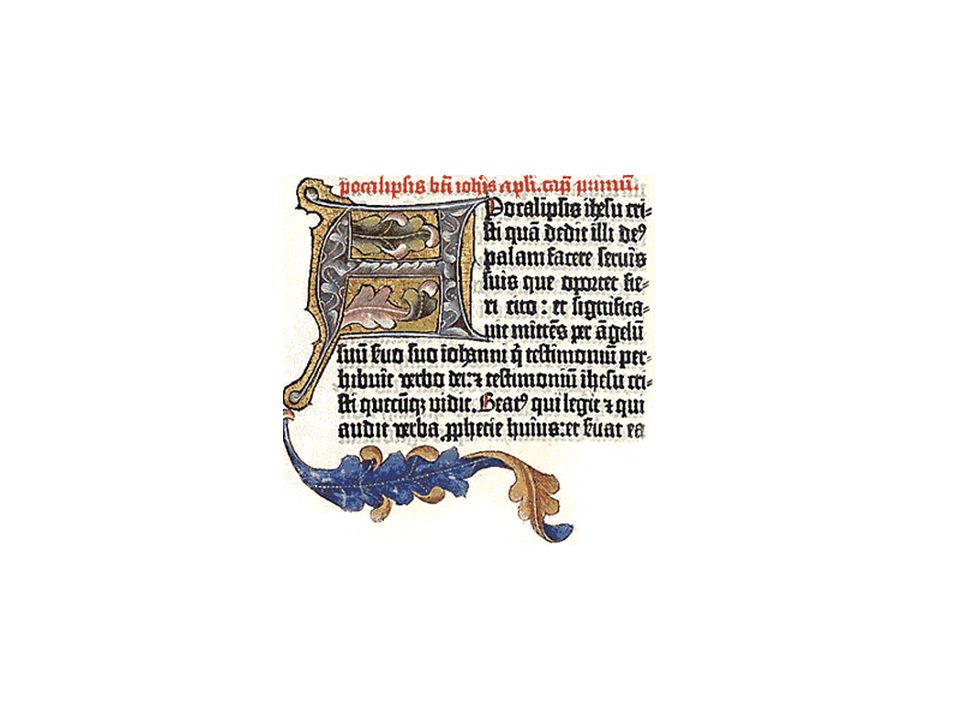 pocalipsis bti ioh̄is apli. cap̄ primū.
Apocalipsis ihesu cri-
sti quā dedit illi deꝰ
palam facere seruis
suis que oportet fie-
ri cito: et significa-
uit mittēs per āgelū
suū suo suo iohanni q̄ testimoniū per-
hibuit verbo dei: ⁊ testimoniū ihesu cri-
sti quecūqꝫ vidit. Beatꝰ qui legit ⁊ qui
audit verba ꝓphetie huius: et s̄uat ea